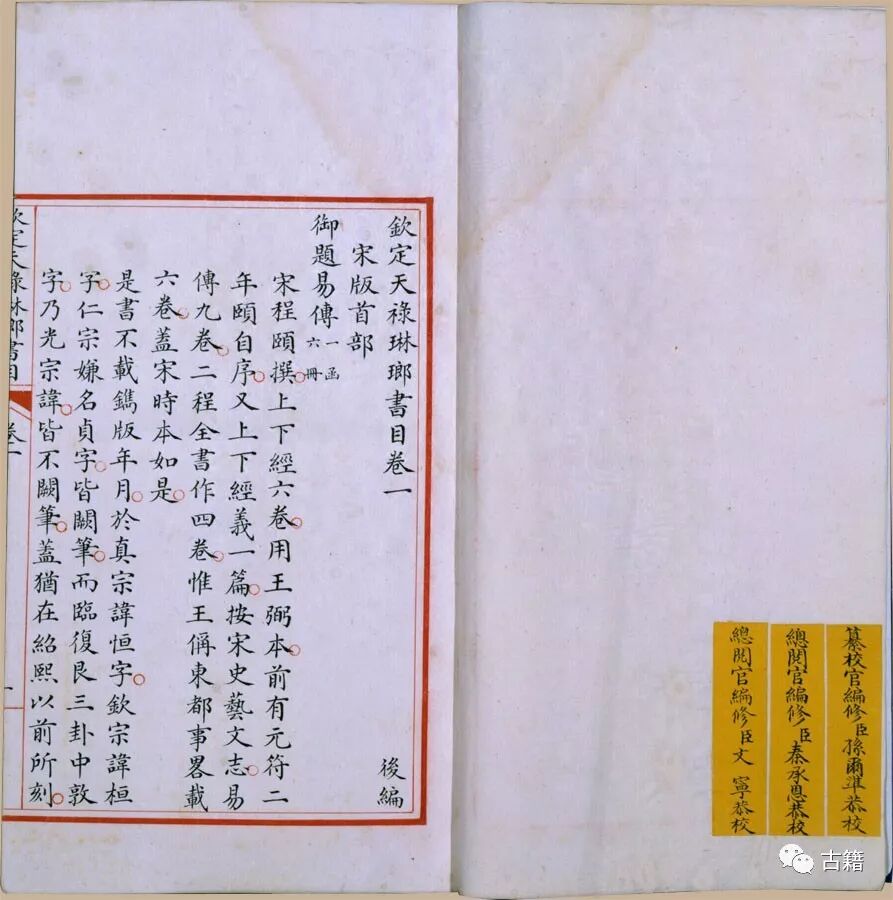 纂校官編修臣孫爾準恭校
總閱官編修臣秦承恩恭校
總閱官編修臣文寧恭校
欽定天祿琳瑯書目卷一 後編
宋版首部
御題易傳一函六冊
宋程頤撰。上下經六卷。用王弼本。前有元符二
年頤自序。又上下經義一篇。按宋史藝文志。易
傳九卷。二程全書作四卷。惟王偁東都事畧載
六卷。蓋宋時本如是。
是書不載鐫版年月。於真宗諱恒字。欽宗諱桓
字。仁宗嫌名貞字。皆闕筆。而臨復艮三卦中敦
字。乃光宗諱。皆不闕筆。蓋猶在紹熙以前所刻。
欽定天祿琳瑯書目 卷一 一
古籍